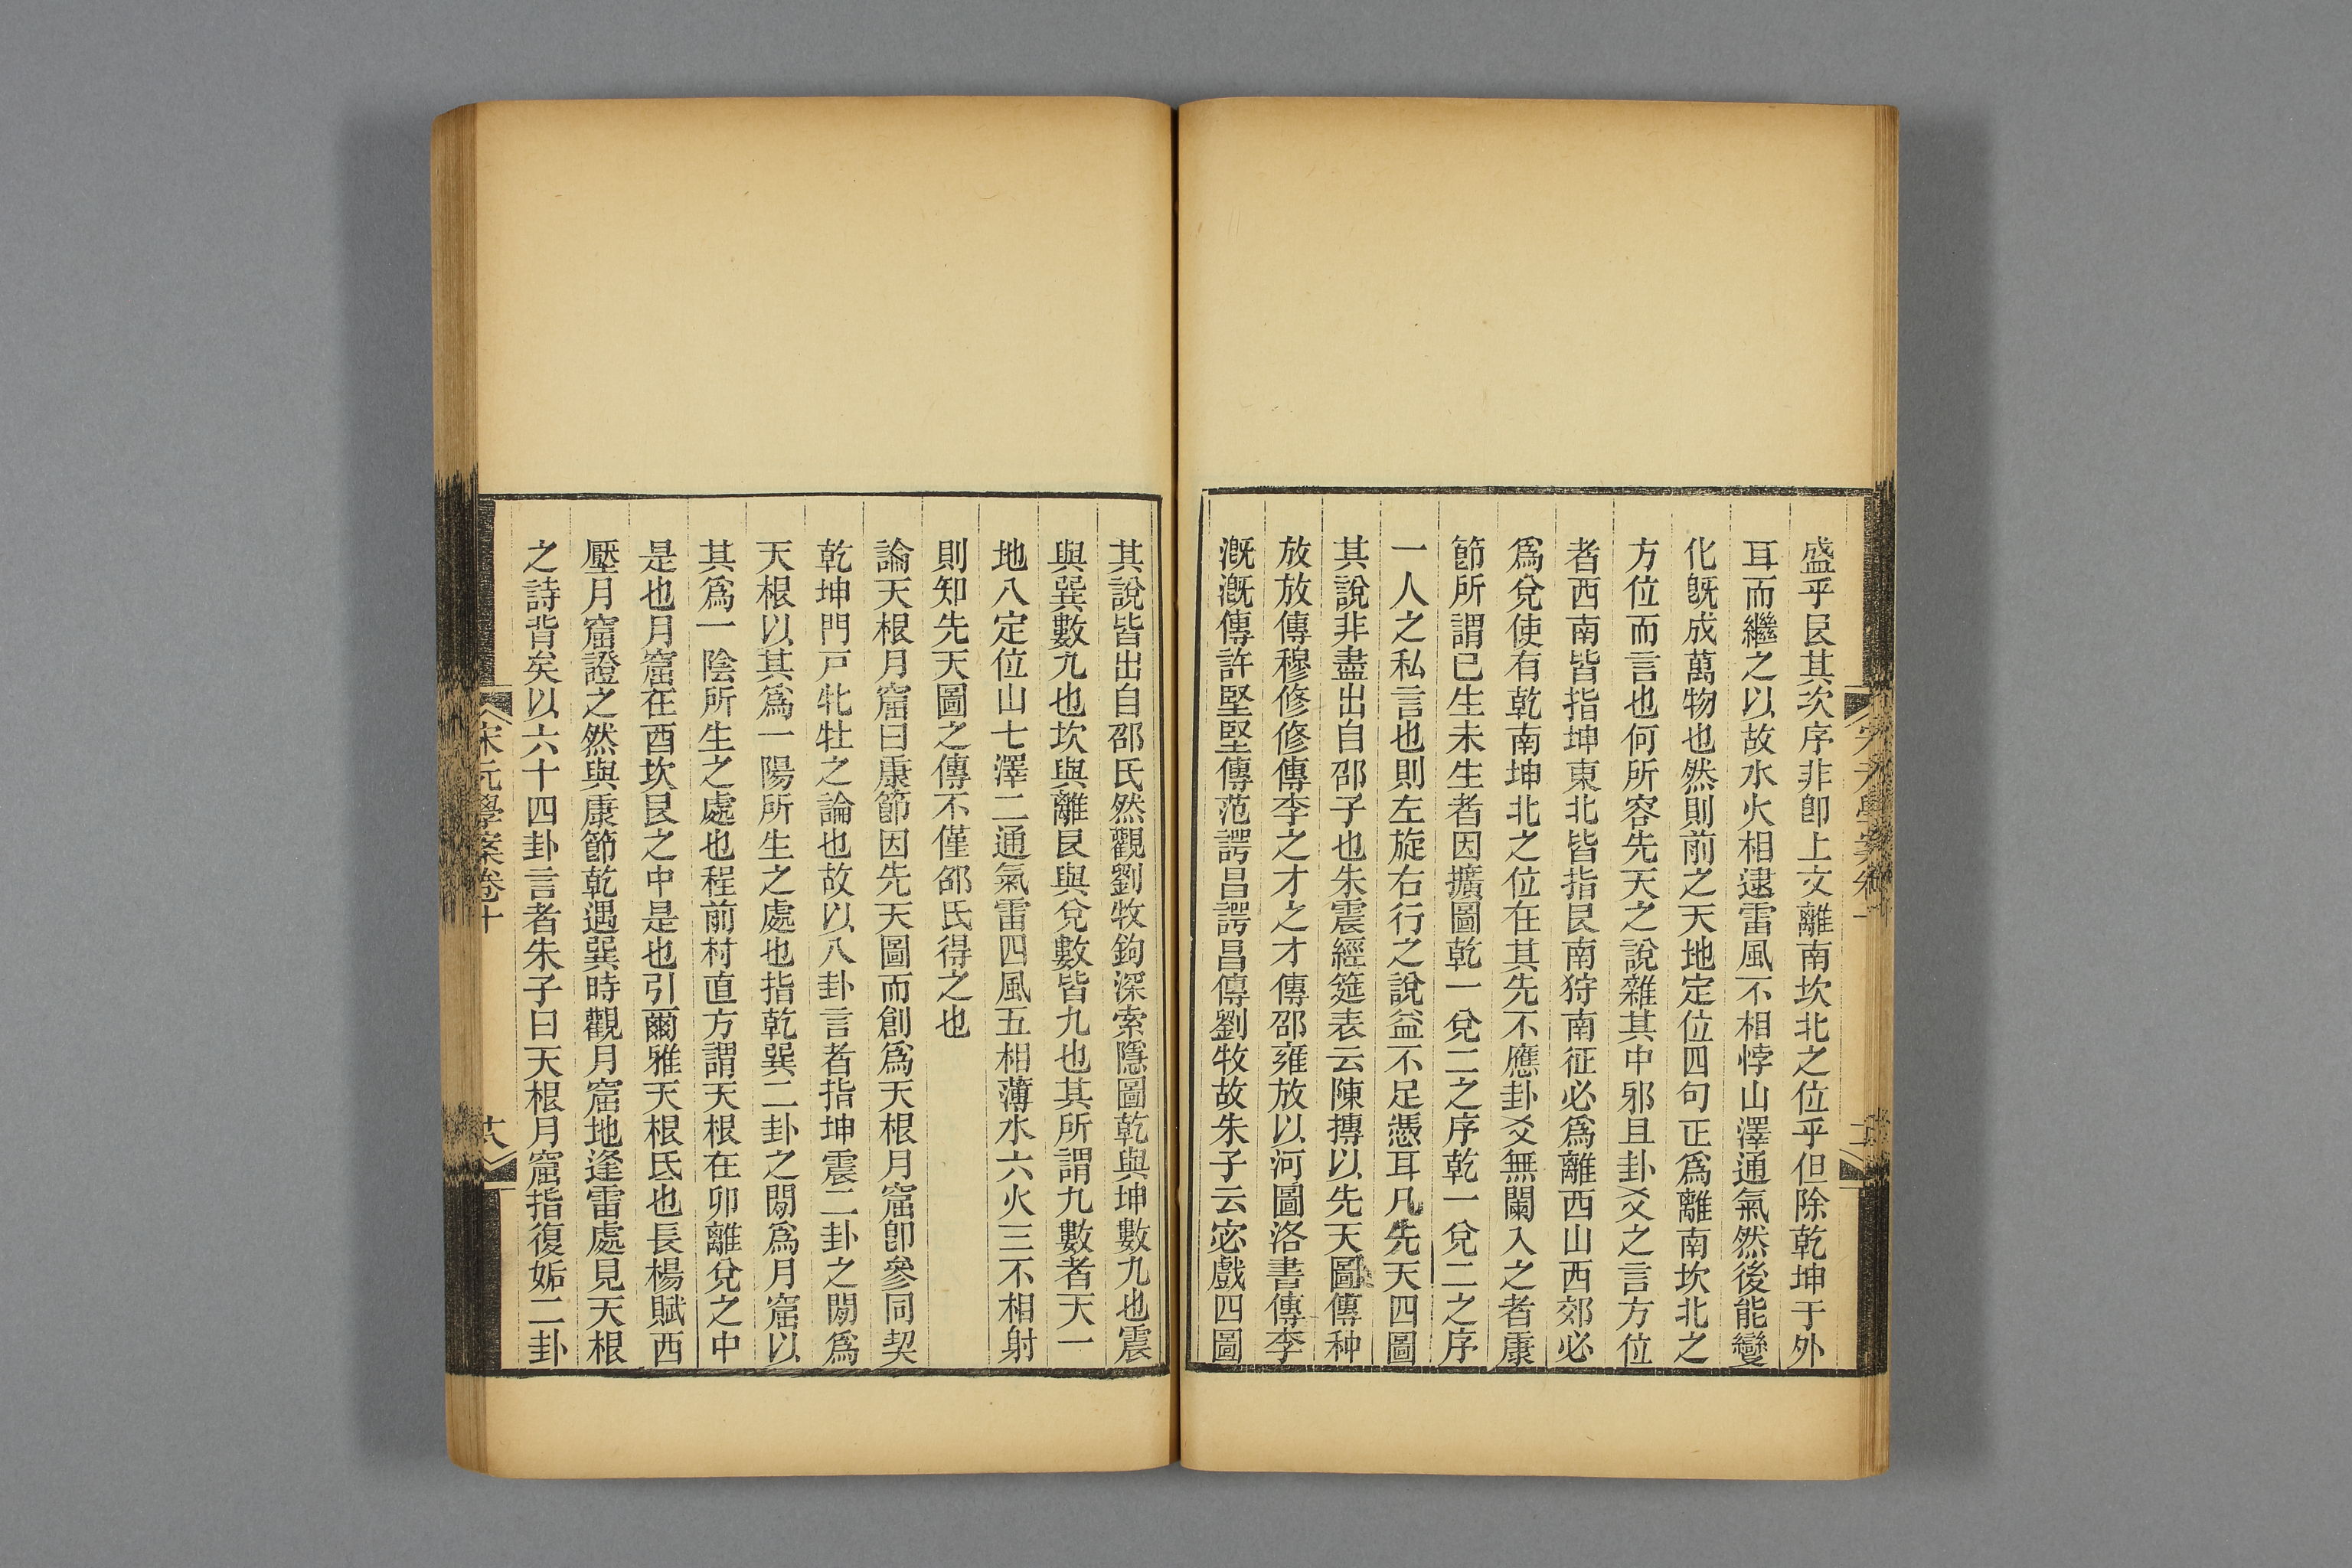 盛乎艮其次序非卽上文離南坎北之位乎但除乾坤于外
耳而繼之以故水火相逮雷風不相悖山澤通氣然後能變
化旣成萬物也然則前之天地定位四句正爲離南坎北之
方位而言也何所容先天之說雜其中邪且卦爻之言方位
者西南皆指坤東北皆指艮南狩南征必爲離西山西郊必
爲兌使有乾南坤北之位在其先不應卦爻無闌入之者康
節所謂已生未生者因擴圖乾一兌二之序乾一兌二之序
一人之私言也則左旋右行之說益不足憑耳凡先天四圖
其說非盡出自邵子也朱震經筵表云陳摶以先天圖傳种
放放傳穆修修傳李之才之才傳邵雍放以河圖洛書傳李
漑漑傳許堅堅傳范諤昌諤昌傳劉牧故朱子云宓戲四圖
其說皆出自邵氏然觀劉牧鉤深索隱圖乾與坤數九也震
與巽數九也坎與離艮與兌數皆九也其所謂九數者天一
地八定位山七澤二通氣雷四風五相薄水六火三不相射
則知先天圖之傳不僅邵氏得之也
論天根月窟曰康節因先天圖而創爲天根月窟卽參同契
乾坤門戸牝牡之論也故以八卦言者指坤震二卦之閒爲
天根以其爲一陽所生之處也指乾巽二卦之閒爲月窟以
其爲一陰所生之處也程前村直方謂天根在卯離兌之中
是也月窟在酉坎艮之中是也引爾雅天根氐也長楊賦西
壓月窟證之然與康節乾遇巽時觀月窟地逢雷處見天根
之詩背矣以六十四卦言者朱子曰天根月窟指復姤二卦
宋元學案卷十